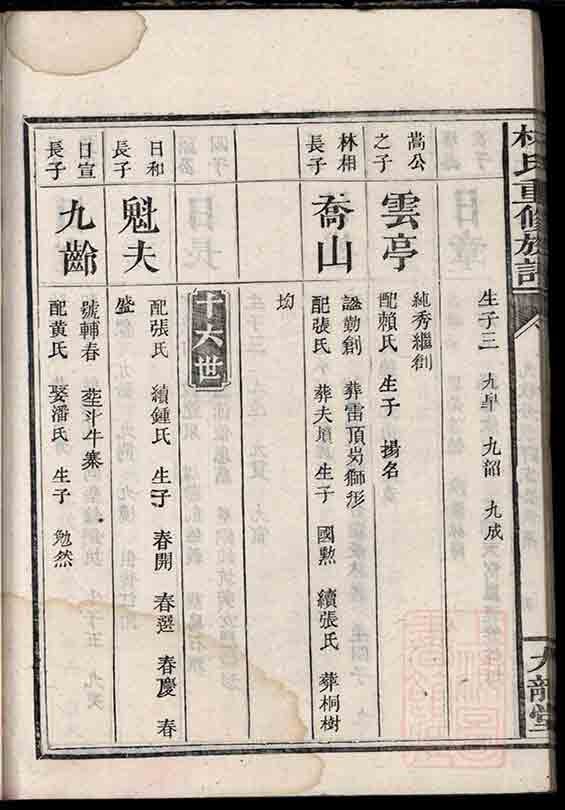 林氏重修族譜
九龍堂
生子三 九旱 九韶 九成
嵩公之子
雲亭
純秀繼創
配賴氏 生子 揚名
林相長子
喬山
謚勤創 葬雷頂岃獅形
配張氏 葬夫墳 生子 國勲 續張氏 葬桐樹
均
十六世
日和長子
魁夫
配張氏 續鍾氏 生子 春開 春選 春慶 春
盛
日宣長子
九齡
號輔春 塟斗牛寨
配黃氏 娶潘氏 生子 勉然